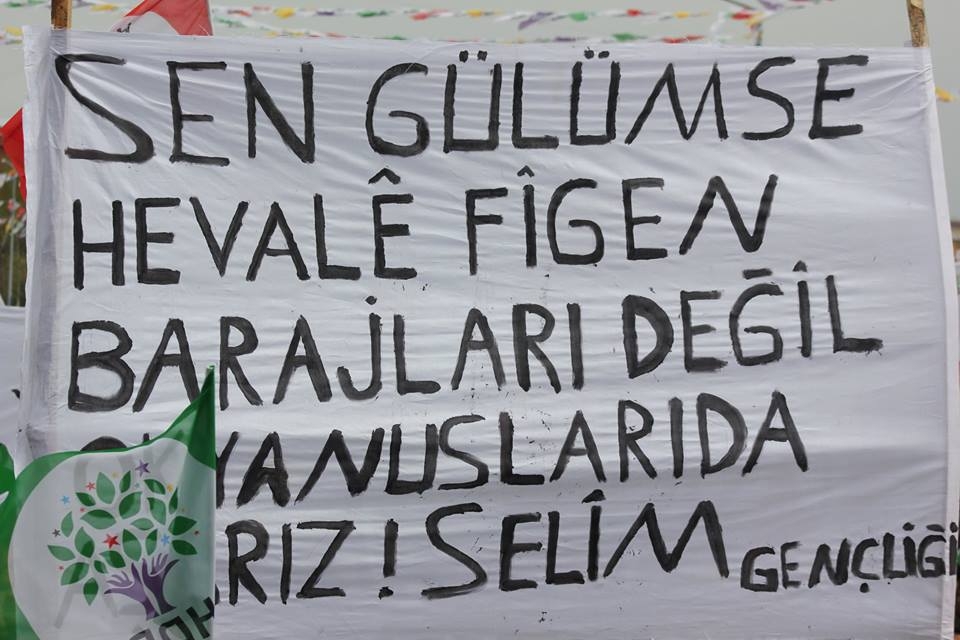 SEN GÜLÜMSE
HEVALÊ FÎGEN
BARAJLARI DEĞİL
OKYANUSLARIDA
ARIZ! SELÎM GENÇLİĞİ
HDP